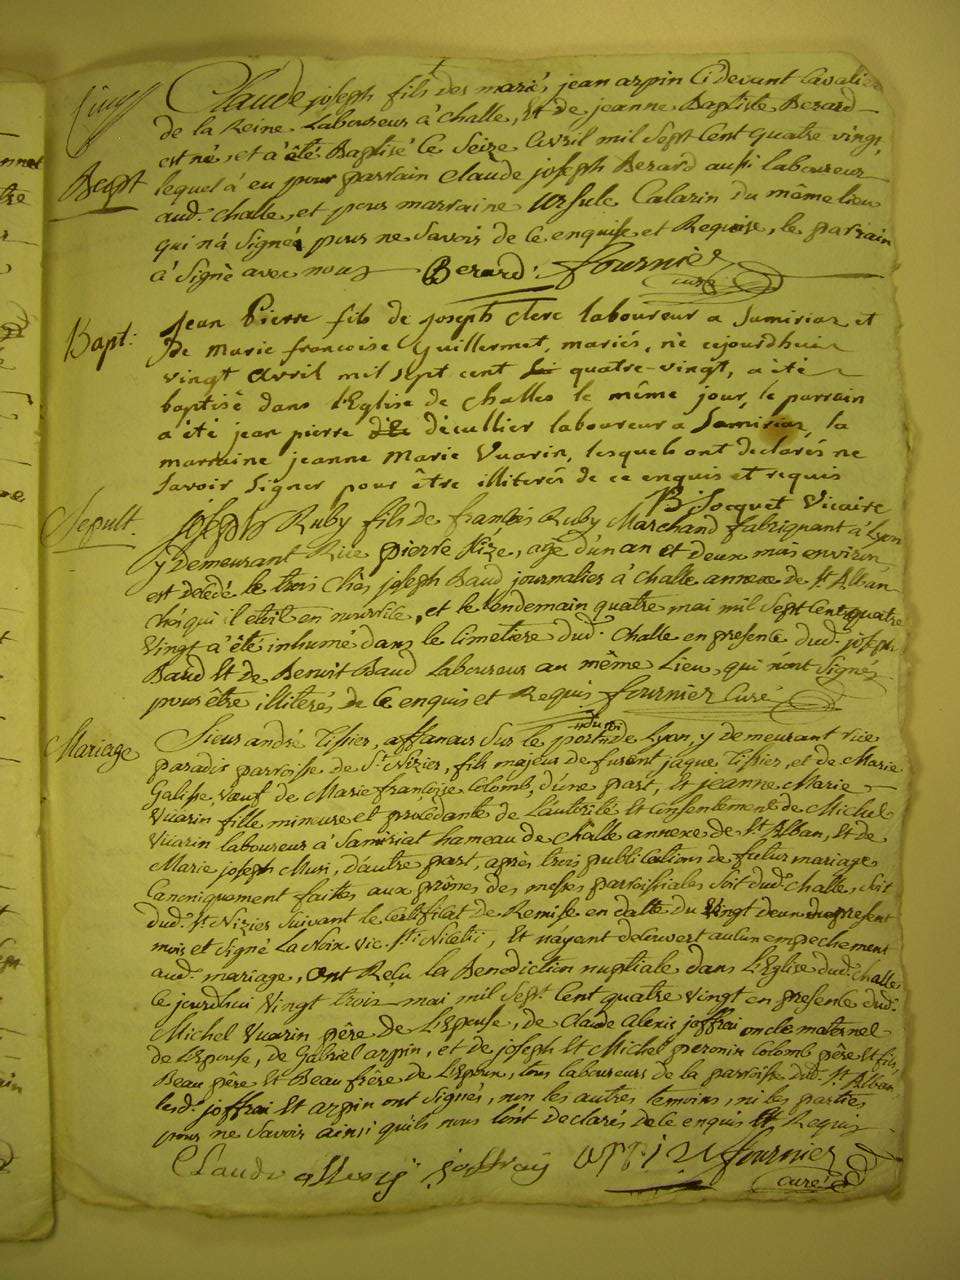 Claude joseph fils des mariés jean arpin Ci devant Cavalier
de la Reine Laboureur à Challe, Et de jeanne Baptiste Berard
est né, et a été Baptisé Ce Seize Avril mil Sept Cent quatre vingt,
Bapt
lequel à eu pour parrain Claude joseph Berard aussi laboureur
aud. Challe, et pour marraine Ursule Calarin du même lieu
qui n'a Signé pour ne Savoir de Ce enquise et Requise, le parrain
à Signé avec nous Berard. fournier
curé
Bapt:
Jean Pierre fils de joseph clerc laboureur a Samiriaz et
de Marie francoise Guillermet, mariés, né cejourdhuir
vingt avril mil sept cent quatre-vingt, a été
baptisé dans l'Eglise de Challes le même jour, le parrain
a été jean pierre décullier laboureur a Samiriaz, la
marraine jeanne Marie Vuarin, lesquels ont declarés ne
Savoir Signer pour être illiterés de ce enquis et requis
B. Jocquet Vicaire
Sepult.
joseph Ruby fils de françois Ruby Marchand fabriquant à Lyon
y demeurant Rüe pierre Size, agé d'un an et deux mois environ
est décédé le trois Chés joseph Baud journalier à Challe annexe de St. Alban
chés qui il étoit en nourrice, et le lendemain quatre mai mil Sept Cent quatre
Vingt a été inhumé dans le Cimetiere dud. Challe en presence dud. joseph
Baud Et de Benoit Baud Laboureur au même Lieu, qui n'ont Signés
pour être illiterés de Ce enquis et Requis fournier Curé
Mariage
Sieur andré Tissier, affaneur Sur le port de Lyon, y demeurant rüe
paradis parroisse de St. Nizier, fils majeur de furent jaque Tissier, et de Marie
Galisse, vœuf de Marie françoise Colomb, d'une part, Et jeanne Marie
Vuarin fille mineure et procédante de L'autorité Et Consentement de Michel
Vuarin laboureur à Samiriat hameau de Challe annexe de St Alban, Et de
Marie joseph Muri, d'autre part, après trois publications de futur mariage
Canoniquement faites aux prônes des messes parroissiales Soit dud. Challe, Soit
dud. St. Nizier Suivant le Certificat de Remise en datte du Vingt deux du present
mois et Signé La Noix vic. Sti Nicetii, Et n'ayant découvert aucun empechement
aud. mariage, ont Reçu la Benediction nuptiale dans L'Eglise dud. Challe
Ce jourdhui Vingt trois mai mil Sept Cent quatre Vingt en presence dud.
Michel Vuarin père de L'Epouse, de Claude Alexis joffrai oncle maternel
de L'Epouse, de Gabriel arpin, et de joseph Et Michel peronin Colomb père Et fils,
Beau père Et Beau frère de L'Epoux, tous laboureurs de la parroisse dud. St. Alban
lesd. joffrai Et arpin ont Signés, non les autres temoins, ni les parties
pour ne Savoir ainsi qu'ils nous l'ont declarés de Ce enquis Et Requis
Claude allexy joffray arpin fournier
curé